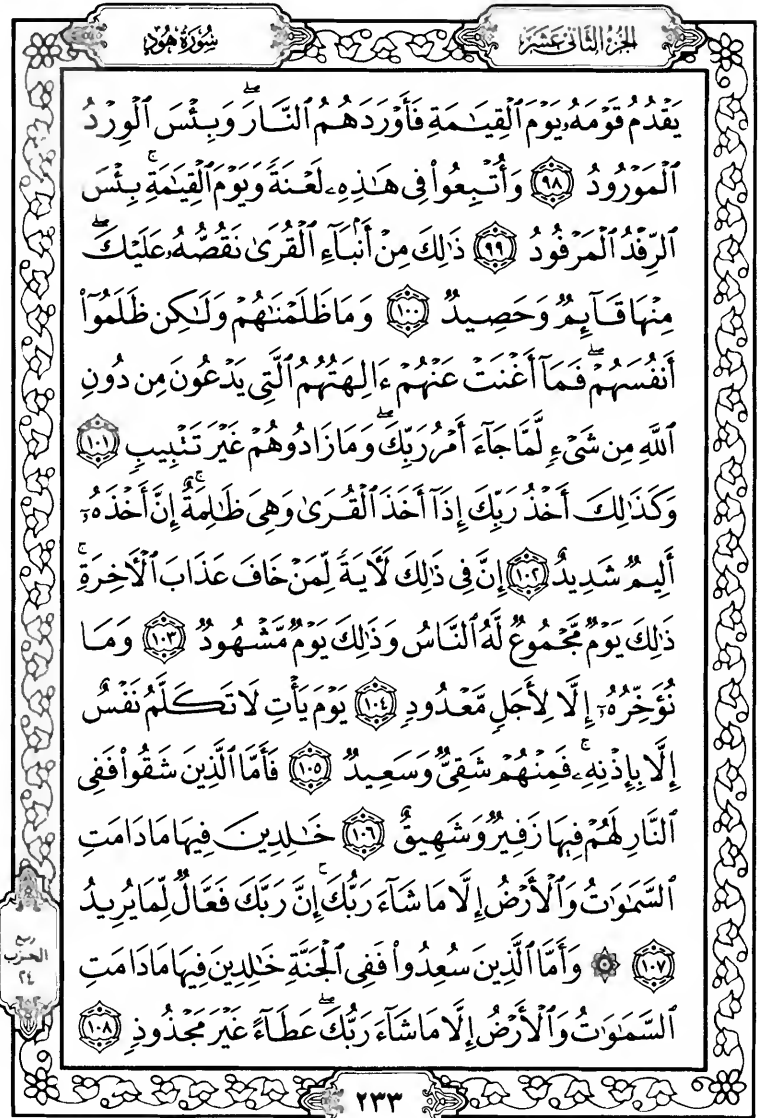 الجزء الثاني عشر
سُورَةُ هُودٍ
يَقْدُمُ قَوْمَهُۥ يَوْمَ ٱلْقِيَـٰمَةِ فَأَوْرَدَهُمُ ٱلنَّارَ ۖ وَبِئْسَ ٱلْوِرْدُ
ٱلْمَوْرُودُ ٩٨ وَأُتْبِعُوا۟ فِى هَـٰذِهِۦ لَعْنَةً وَيَوْمَ ٱلْقِيَـٰمَةِ ۚ بِئْسَ
ٱلرِّفْدُ ٱلْمَرْفُودُ ٩٩ ذَٰلِكَ مِنْ أَنۢبَآءِ ٱلْقُرَىٰ نَقُصُّهُۥ عَلَيْكَ ۖ
مِنْهَا قَآئِمٌ وَحَصِيدٌ ١٠٠ وَمَا ظَلَمْنَـٰهُمْ وَلَـٰكِن ظَلَمُوٓا۟
أَنفُسَهُمْ ۖ فَمَآ أَغْنَتْ عَنْهُمْ ءَالِهَتُهُمُ ٱلَّتِى يَدْعُونَ مِن دُونِ
ٱللَّهِ مِن شَىْءٍ لَّمَّا جَآءَ أَمْرُ رَبِّكَ ۖ وَمَا زَادُوهُمْ غَيْرَ تَتْبِيبٍ ١٠١
وَكَذَٰلِكَ أَخْذُ رَبِّكَ إِذَآ أَخَذَ ٱلْقُرَىٰ وَهِىَ ظَـٰلِمَةٌ ۚ إِنَّ أَخْذَهُۥٓ
أَلِيمٌ شَدِيدٌ ١٠٢ إِنَّ فِى ذَٰلِكَ لَـَٔايَةً لِّمَنْ خَافَ عَذَابَ ٱلْـَٔاخِرَةِ ۚ
ذَٰلِكَ يَوْمٌ مَّجْمُوعٌ لَّهُ ٱلنَّاسُ وَذَٰلِكَ يَوْمٌ مَّشْهُودٌ ١٠٣ وَمَا
نُؤَخِّرُهُۥٓ إِلَّا لِأَجَلٍ مَّعْدُودٍ ١٠٤ يَوْمَ يَأْتِ لَا تَكَلَّمُ نَفْسٌ
إِلَّا بِإِذْنِهِۦ ۚ فَمِنْهُمْ شَقِىٌّ وَسَعِيدٌ ١٠٥ فَأَمَّا ٱلَّذِينَ شَقُوا۟ فَفِى
ٱلنَّارِ لَهُمْ فِيهَا زَفِيرٌ وَشَهِيقٌ ١٠٦ خَـٰلِدِينَ فِيهَا مَا دَامَتِ
ٱلسَّمَـٰوَٰتُ وَٱلْأَرْضُ إِلَّا مَا شَآءَ رَبُّكَ ۚ إِنَّ رَبَّكَ فَعَّالٌ لِّمَا يُرِيدُ
١٠٧ ۞ وَأَمَّا ٱلَّذِينَ سُعِدُوا۟ فَفِى ٱلْجَنَّةِ خَـٰلِدِينَ فِيهَا مَا دَامَتِ
ٱلسَّمَـٰوَٰتُ وَٱلْأَرْضُ إِلَّا مَا شَآءَ رَبُّكَ ۖ عَطَآءً غَيْرَ مَجْذُوذٍ ١٠٨
ربع
الحزب
٢٤
٢٣٣